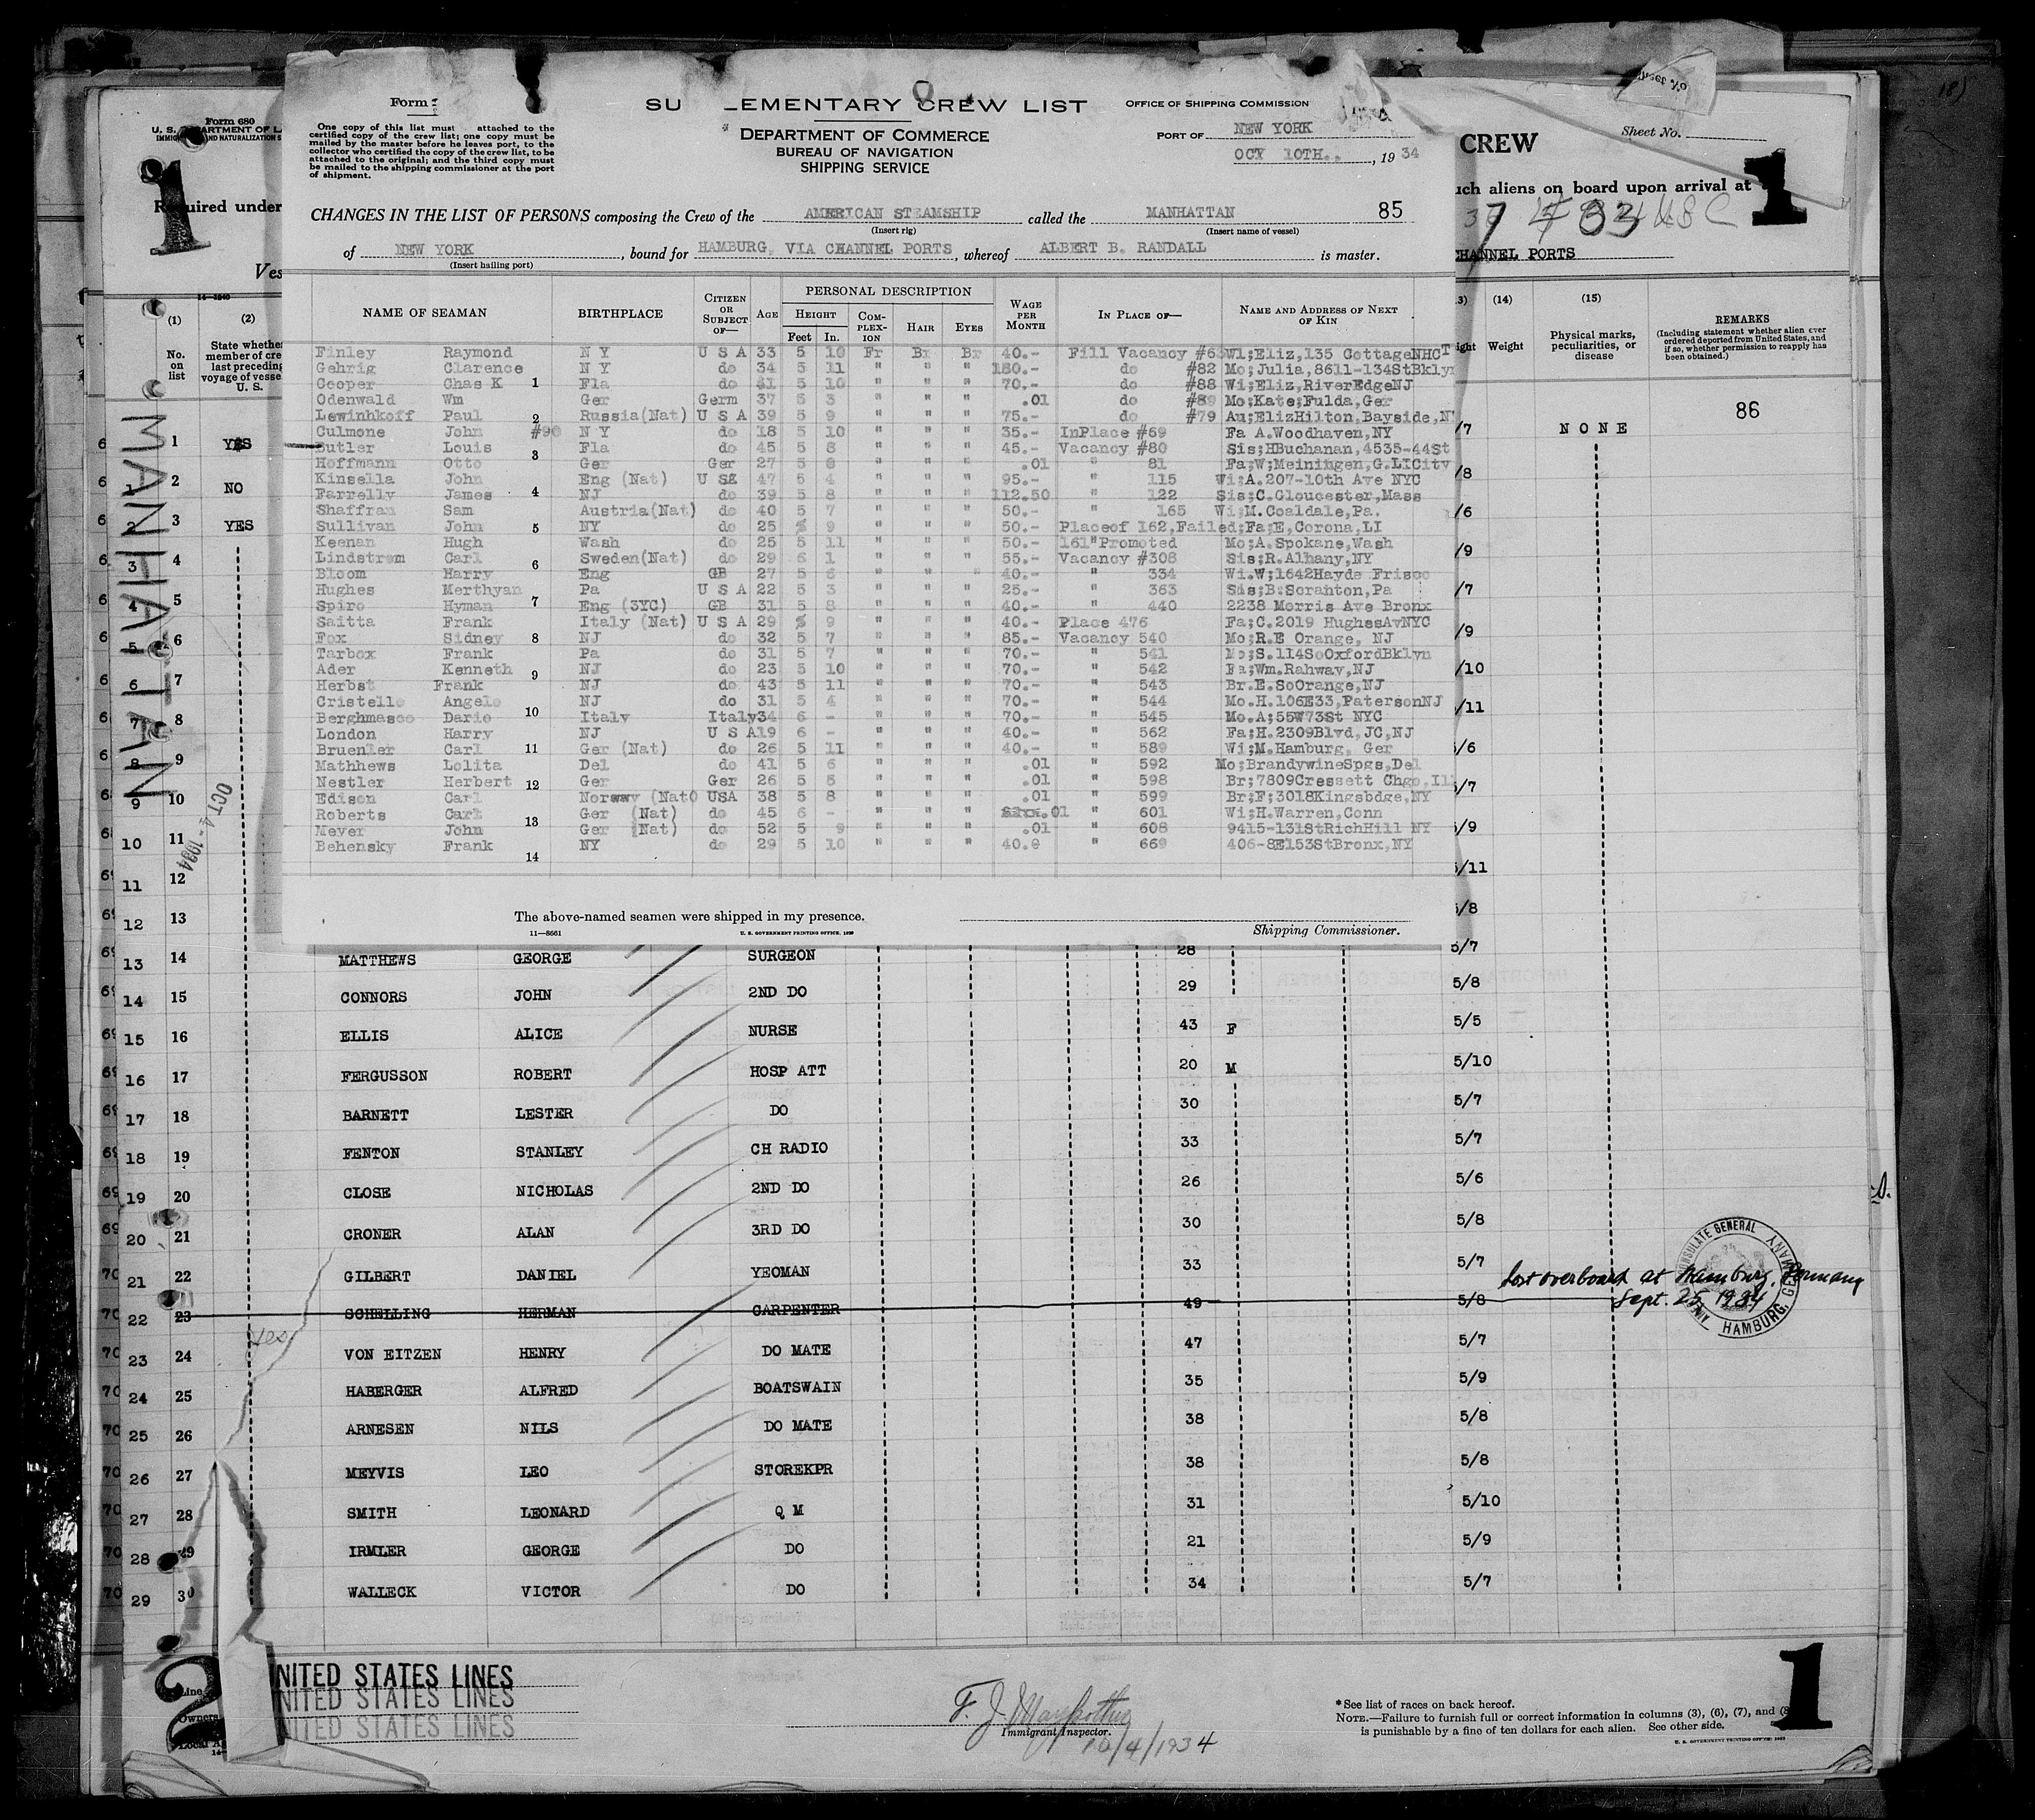 Form
SU LEMENTARY CREW LIST
OFFICE OF SHIPPING COMMISSION
One copy of this list must attached to the
certified copy of the crew list; one copy must be
mailed by the master before he leaves port, to the
collector who certified the copy of the crew list, to be
attached to the original; and the third copy must
be mailed to the shipping commissioner at the port
of shipment.
DEPARTMENT OF COMMERCE
BUREAU OF NAVIGATION
SHIPPING SERVICE
PORT OF NEW YORK
OCY 10TH., 1934
CHANGES IN THE LIST OF PERSONS composing the Crew of the AMERICAN STEAMSHIP called the MANHATTAN 85
(Insert rig) (Insert name of vessel)
of NEW YORK, bound for HAMBURG, VIA CHANNEL PORTS, whereof ALBERT B. RANDALL is master.
(Insert hailing port)
NAME OF SEAMAN BIRTHPLACE CITIZEN OR SUBJECT OF— AGE PERSONAL DESCRIPTION HEIGHT Feet In. COMPLEXION HAIR EYES WAGE PER MONTH IN PLACE OF— NAME AND ADDRESS OF NEXT OF KIN
Finley Raymond N Y U S A 33 5 10 Fr Br Br 40.- Fill Vacancy Wi;Eliz,135 CottageNHCT
Gehrig Clarence N Y do 34 5 11 " " " 180.- do #82 Mo;Julia,8611-134StBklyn
Cooper Chas K 1 Fla do 5 10 " " " 70.- do #88 Wi;Eliz,RiverEdgeNJ
Odenwald Wm Ger Germ 37 5 3 " " " .01 do #89 Mo;Kate;Fulda,Ger
Lewinhkoff Paul 2 Russia(Nat) U S A 39 5 9 " " " 75.- do #79 Au;ElizHilton,Bayside,NY
Culmone John #90 N Y do 18 5 10 " " " 35.- InPlace #69 Fa A.Woodhaven,NY
Butler Louis 3 Fla do 45 5 8 " " " 45.- Vacancy #80 Sis;HBuchanan,4535-44St
Hoffmann Otto Ger Ger 27 5 " " " .01 " 81 Fa;W;Meiningen,G.LICity
Kinsella John Eng (Nat) 47 5 4 " " " 95.- " 115 Wi;A.207-10th Ave NYC
Farrelly James 4 NJ do 39 5 8 " " " 112.50 " 122 Sis;C.Gloucester,Mass
Shaffran Sam Austria(Nat) do 40 5 7 " " " 50.- " 165 Wi;M.Coaldale,Pa.
Sullivan John 5 NY do 25 5 9 " " " 50.- Placeof 162,Failed;Fa;E,Corona,LI
Keenan Hugh Wash do 25 5 11 " " " 50.- 161"Promoted Mo;A.Spokane,Wash
Lindstrom Carl 6 Sweden(Nat) do 29 6 1 " " " 55.- Vacancy #308 Sis;R.Albany,NY
Bloom Harry Eng GB 27 5 6 " " " 40.- " 334 Wi.W;1642Hayde Frisco
Hughes Merthyan Pa U S A 22 5 3 " " " 25.- " 363 Sis;B;Scranton,Pa
Spiro Hyman 7 Eng (3YC) GB 31 5 8 " " " 40.- " 440 2238 Morris Ave Bronx
Saitta Frank Italy (Nat) U S A 29 5 9 " " " 40.- Place 476 Fa;C.2019 HughesAvNYC
Fox Sidney 8 NJ do 32 5 7 " " " 85.- Vacancy 540 Mo;R.E Orange, NJ
Tarbox Frank Pa do 31 5 7 " " " 70.- " 541 Mo;S.114SoOxfordBklyn
Ader Kenneth 9 NJ do 23 5 10 " " " 70.- " 542 Fa;Wm.Rahway,NJ
Herbst Frank NJ do 43 5 11 " " " 70.- " 543 Br.E.SoOrange,NJ
Cristello Angelo NJ do 31 5 4 " " " 70.- " 544 Mo.H.106E33,PatersonNJ
Berghmasco Dario 10 Italy Italy 34 6 - " " " 70.- " 545 Mo.A;55W73St NYC
London Harry NJ U S A 19 6 - " " " 40.- " 562 Fa;H.2309Blvd,JC,NJ
Bruenler Carl 11 Ger (Nat) do 26 5 11 " " " 40.- " 589 Wi;M.Hamburg, Ger
Mathhews Lolita Del do 41 5 6 " " " .01 " 592 Mo;BrandywineSpgs,Del
Nestler Herbert 12 Ger Ger 26 5 5 " " " .01 " 598 Br;7809Cressett Chgo,Il
Edison Carl Norway (NatO USA 38 5 8 " " " .01 " 599 Br;F;3018Kingsbdge,NY
Roberts Carl 13 Ger (Nat) do 45 6 - " " " .01 " 601 Wi;H.Warren,Conn
Meyer John Ger (Nat) do 52 5 9 " " " .01 " 608 9415-131StRichHill NY
Behensky Frank 14 NY do 29 5 10 " " " 40.0 " 669 406-8E153StBronx,NY
The above-named seamen were shipped in my presence.
Shipping Commissioner.
11—8661 U. S. GOVERNMENT PRINTING OFFICE. 1933
Form 680
U. S. DEPARTMENT OF
AND NATURALIZATION
1
Required under
Ves
14—1240
(1) (2)
No. on list
State whether
member of cre
last preceding
voyage of vesse
U. S.
CREW
Sheet No.
1
such aliens on board upon arrival at
CHANNEL PORTS
(14) (15)
Weight
Physical marks, peculiarities, or disease
REMARKS
(Including statement whether alien ever
ordered deported from United States, and
if so, whether permission to reapply has
been obtained.)
86
MANHATTAN
OCT 4-1934
1 YES /7 NONE
2 NO /8
3 YES /6
4 /9
5 /7
6 /9
7 /10
8 /11
9 5/6
10 5/7
11 5/9
12 5/11
13 5/8
13 14 MATTHEWS GEORGE SURGEON 28 5/7
14 15 CONNORS JOHN 2ND DO 29 5/8
15 16 ELLIS ALICE NURSE 43 F 5/5
16 17 FERGUSSON ROBERT HOSP ATT 20 M 5/10
17 18 BARNETT LESTER DO 30 5/7
18 19 FENTON STANLEY CH RADIO 33 5/7
19 20 CLOSE NICHOLAS 2ND DO 26 5/6
20 21 CRONER ALAN 3RD DO 30 5/8
21 22 GILBERT DANIEL YEOMAN 33 5/7
22 23 SCHELLING HERMAN CARPENTER 49 5/8
Lost overboard at Hamburg, Germany
Sept. 25, 1934
CONSULATE GENERAL
HAMBURG, GERMANY
yes
23 24 VON EITZEN HENRY DO MATE 47 5/7
24 25 HABERGER ALFRED BOATSWAIN 35 5/9
25 26 ARNESEN NILS DO MATE 38 5/8
26 27 MEYVIS LEO STOREKPR 38 5/8
27 28 SMITH LEONARD Q M 31 5/10
28 29 IRMLER GEORGE DO 21 5/9
29 30 WALLECK VICTOR DO 34 5/7
2
NITED STATES LINES
NITED STATES LINES
NITED STATES LINES
Line
Owners
Local A
F. J.
Immigrant Inspector.
10/4/1934
*See list of races on back hereof.
NOTE.—Failure to furnish full or correct information in columns (3), (6), (7), and (8
is punishable by a fine of ten dollars for each alien. See other side.
U. S. GOVERNMENT PRINTING OFFICE: 1933
1